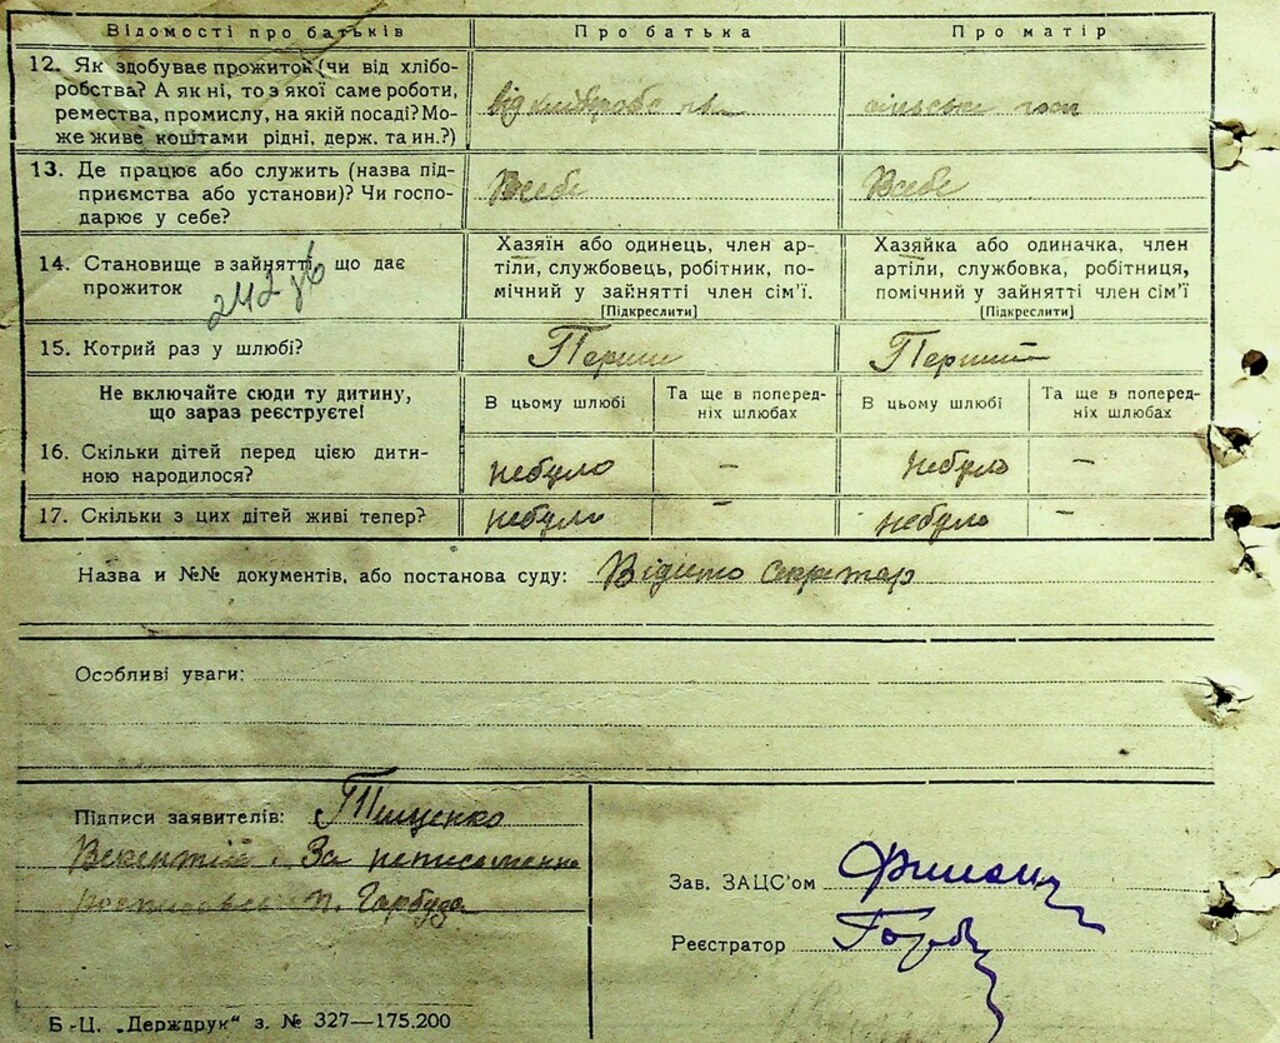 Відомості про батьків Про батька Про матір
12. Як здобуває прожиток (чи від хлібо-
робства? А як ні, то з якої саме роботи,
ремества, промислу, на якій посаді? Мо-
же живе коштами рідні, держ. та ин.?)
від
13. Де працює або служить (назва під-
приємства або установи)? Чи госпо-
дарює у себе?
Всебе Всебе
14. Становище в зайнятті, що дає
прожиток
242
Хазяїн або одинець, член ар-
тіли, службовець, робітник, по-
мічний у зайнятті член сім'ї.
[Підкреслити]
Хазяйка або одиначка, член
артіли, службовка, робітниця,
помічний у зайнятті член сім'ї
[Підкреслити]
15. Котрий раз у шлюбі? Перши Перший
Не включайте сюди ту дитину,
що зараз реєструєте!
В цьому шлюбі
Та ще в поперед-
ніх шлюбах
В цьому шлюбі
Та ще в поперед-
ніх шлюбах
16. Скільки дітей перед цією дити-
ною народилося?
небуло – небуло –
17. Скільки з цих дітей живі тепер? небуло – небуло –
Назва и №№ документів, або постанова суду: Відомо секретар
Особливі уваги:
Підписи заявителів: Тищенко
Векентій. За неписьменна
п. Гарбуза
Зав. ЗАЦС'ом
Реєстратор
Б.-Ц. „Держдрук“ з. № 327—175.200